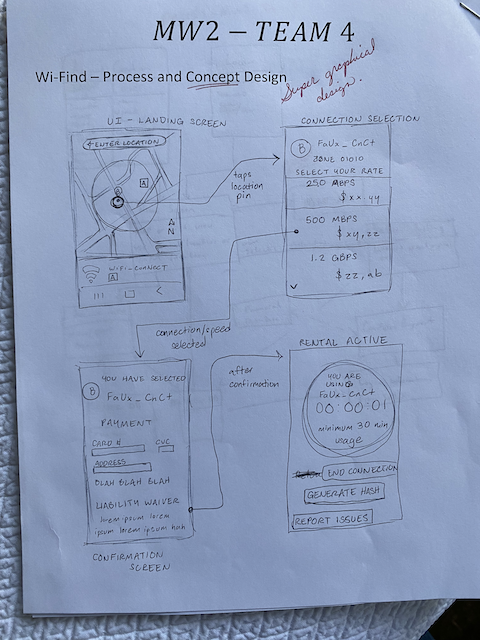 MW2 – TEAM 4
Wi-Find – Process and Concept Design
Super graphical
design.
UI - LANDING SCREEN
ENTER LOCATION
A
B
N
WIFI-CONNECT
A
taps
location
pin
CONNECTION SELECTION
B
FaUx_CnCt
ZONE 01010
SELECT YOUR RATE
250 MBPS
$xx.yy
500 MBPS
$xy,zz
1.2 GBPS
$zz,ab
connection/speed
selected
YOU HAVE SELECTED
B
FaUx_CnCt
PAYMENT
CARD #
CVC
ADDRESS
BLAH BLAH BLAH
LIABILITY WAIVER
lorem-ipsum lorem
ipsum lorem ipsum hah
CONFIRMATION
SCREEN
after
confirmation
RENTAL ACTIVE
YOU ARE
USING
FaUx_CnCt
00:00:01
minimum 30 min
usage
END CONNECTION
GENERATE HASH
REPORT ISSUES